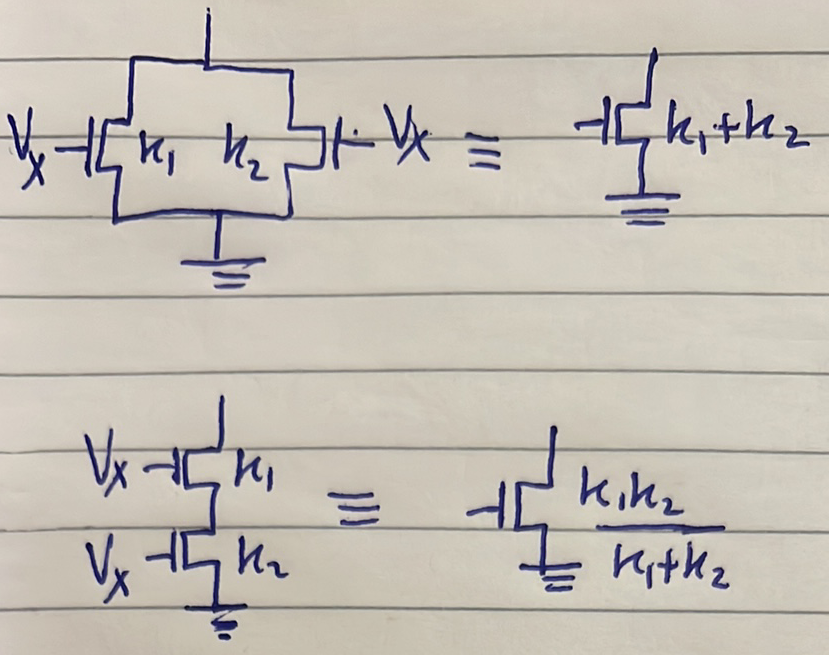 V_X k_1 k_2 V_X ≡ k_1+k_2
V_X k_1
V_X k_2 ≡ k_1k_2
k_1+k_2